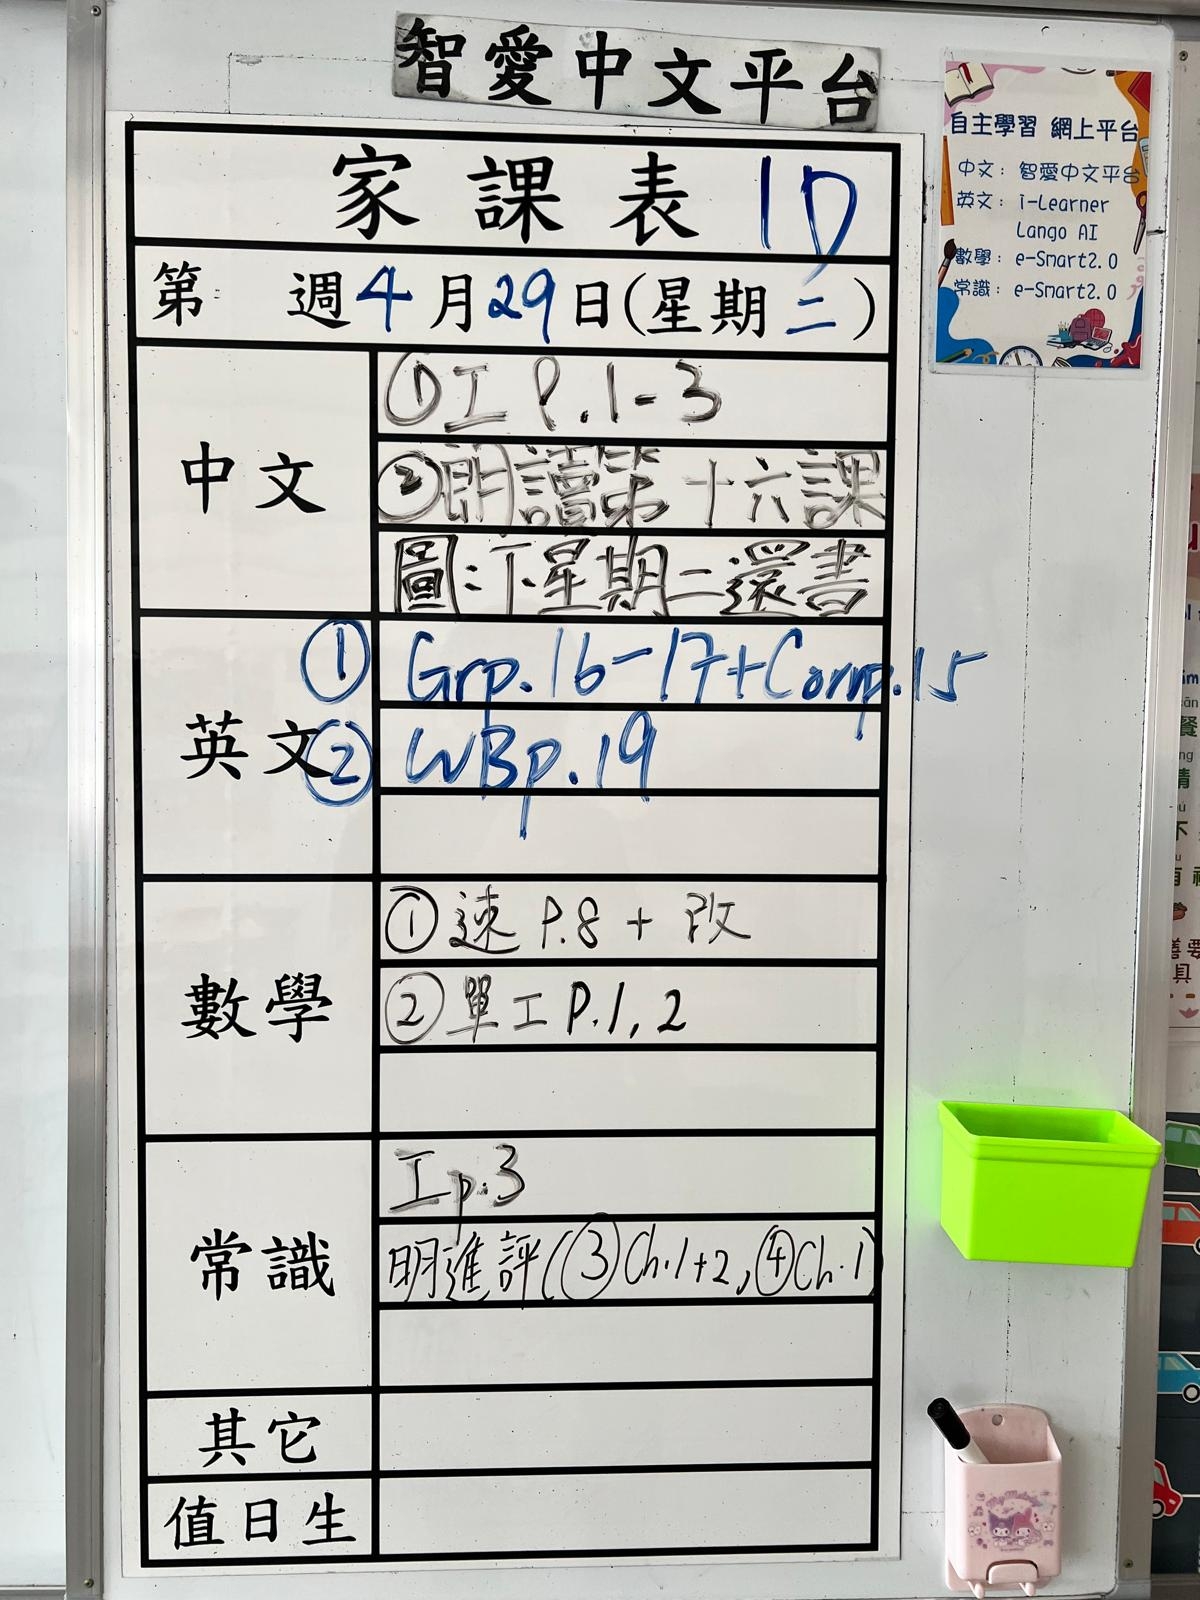 智愛中文平台
家課表 1D
第 週 4月29日(星期二)
中文
①工 P.1-3
②朗讀第十六課
圖:下星期二還書
英文
① Grp.16-17+Comp.15
② WBp.19
數學
①速 P.8 + 改
②單工 P.1, 2
常識
工p.3
明進評(③Ch.1+2,④Ch.1)
其它
值日生
自主學習 網上平台
中文: 智愛中文平台
英文: i-Learner
Lango AI
數學: e-Smart2.0
常識: e-Smart2.0